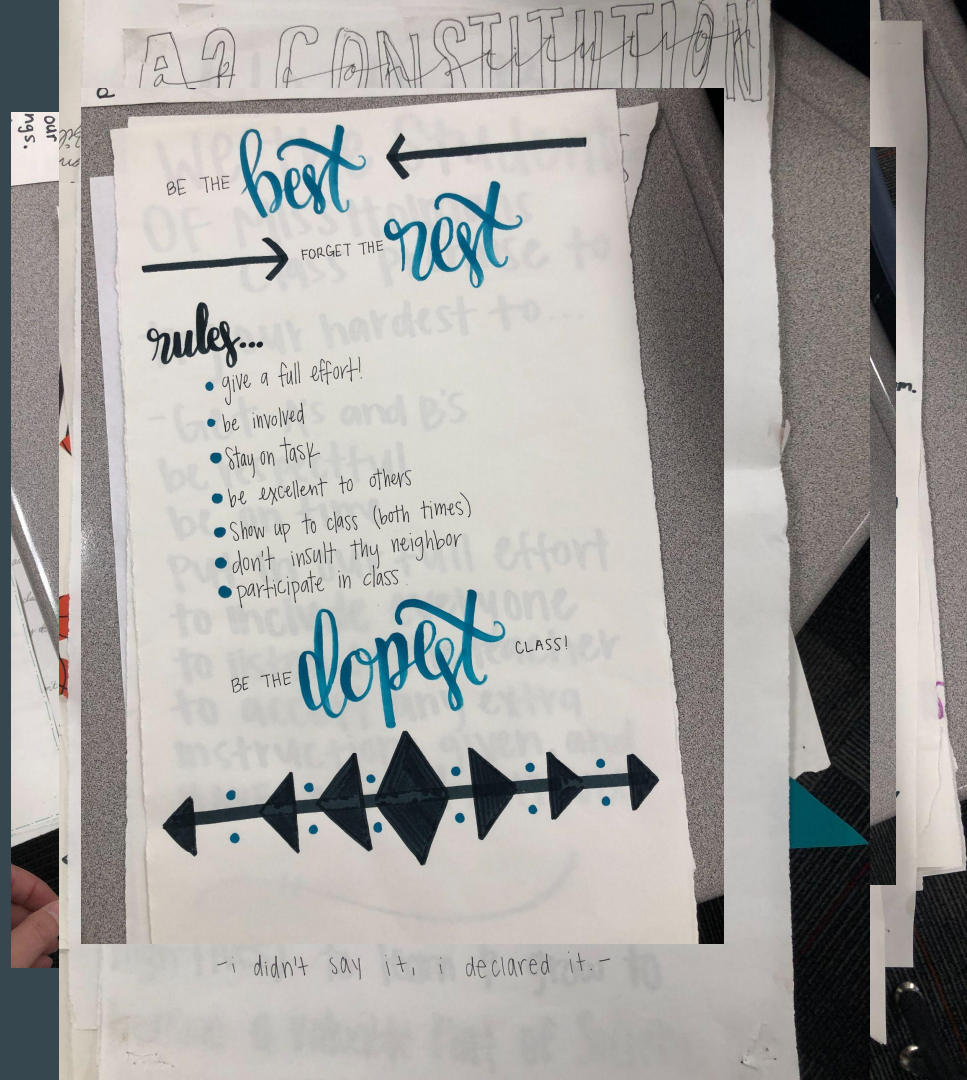 A2 CONSTITUTION
our
ngs.
BE THE best
FORGET THE rest
rules...
• give a full effort!
• be involved
• Stay on task
• be excellent to others
• Show up to class (both times)
• don't insult thy neighbor
• participate in class
BE THE dopest CLASS!
-i didn't say it, i declared it.-